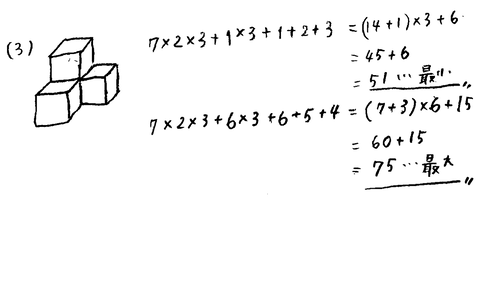 (3)
7×2×3+1×3+1+2+3 = (14+1)×3+6
= 45+6
= 51…最小〃
7×2×3+6×3+6+5+4 = (7+3)×6+15
= 60+15
= 75…最大〃